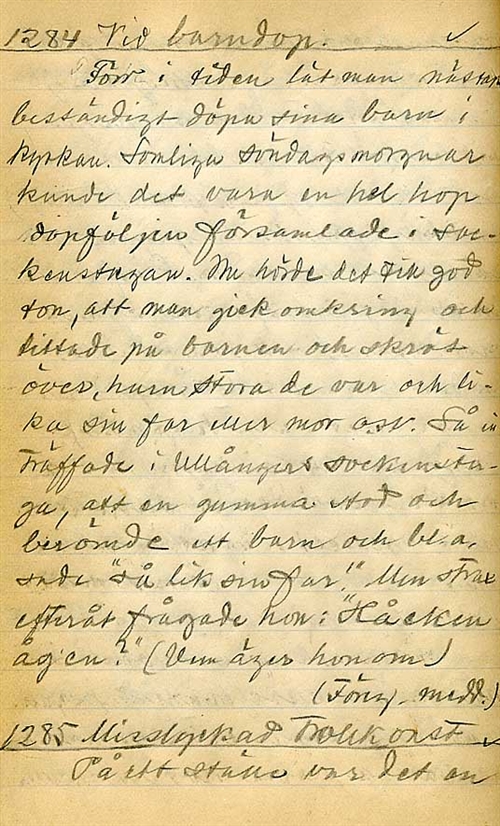 1284 Vid barndop.
Förr i tiden lät man nästan
beständigt döpa sina barn i
kyrkan. Somliga söndagsmorgnar
kunde det vara en hel hop
dopföljen församlade i soc-
kenstugan. Nu hörde det till god
ton, att man gick omkring och
tittade på barnen och skröt
över, huru stora de var och li-
ka sin far eller mor o.sv. Så in
träffade i Ullångers sockenstu-
ga, att en gumma stod och
berömde ett barn och bl.a.
sade "så lik sin far!" Men strax
efteråt frågade hon: "Håcken
äg'en?" (Vem äger honom)
(Föreg. medd.)
1285 Misslyckad trollkonst
På ett ställe var det en